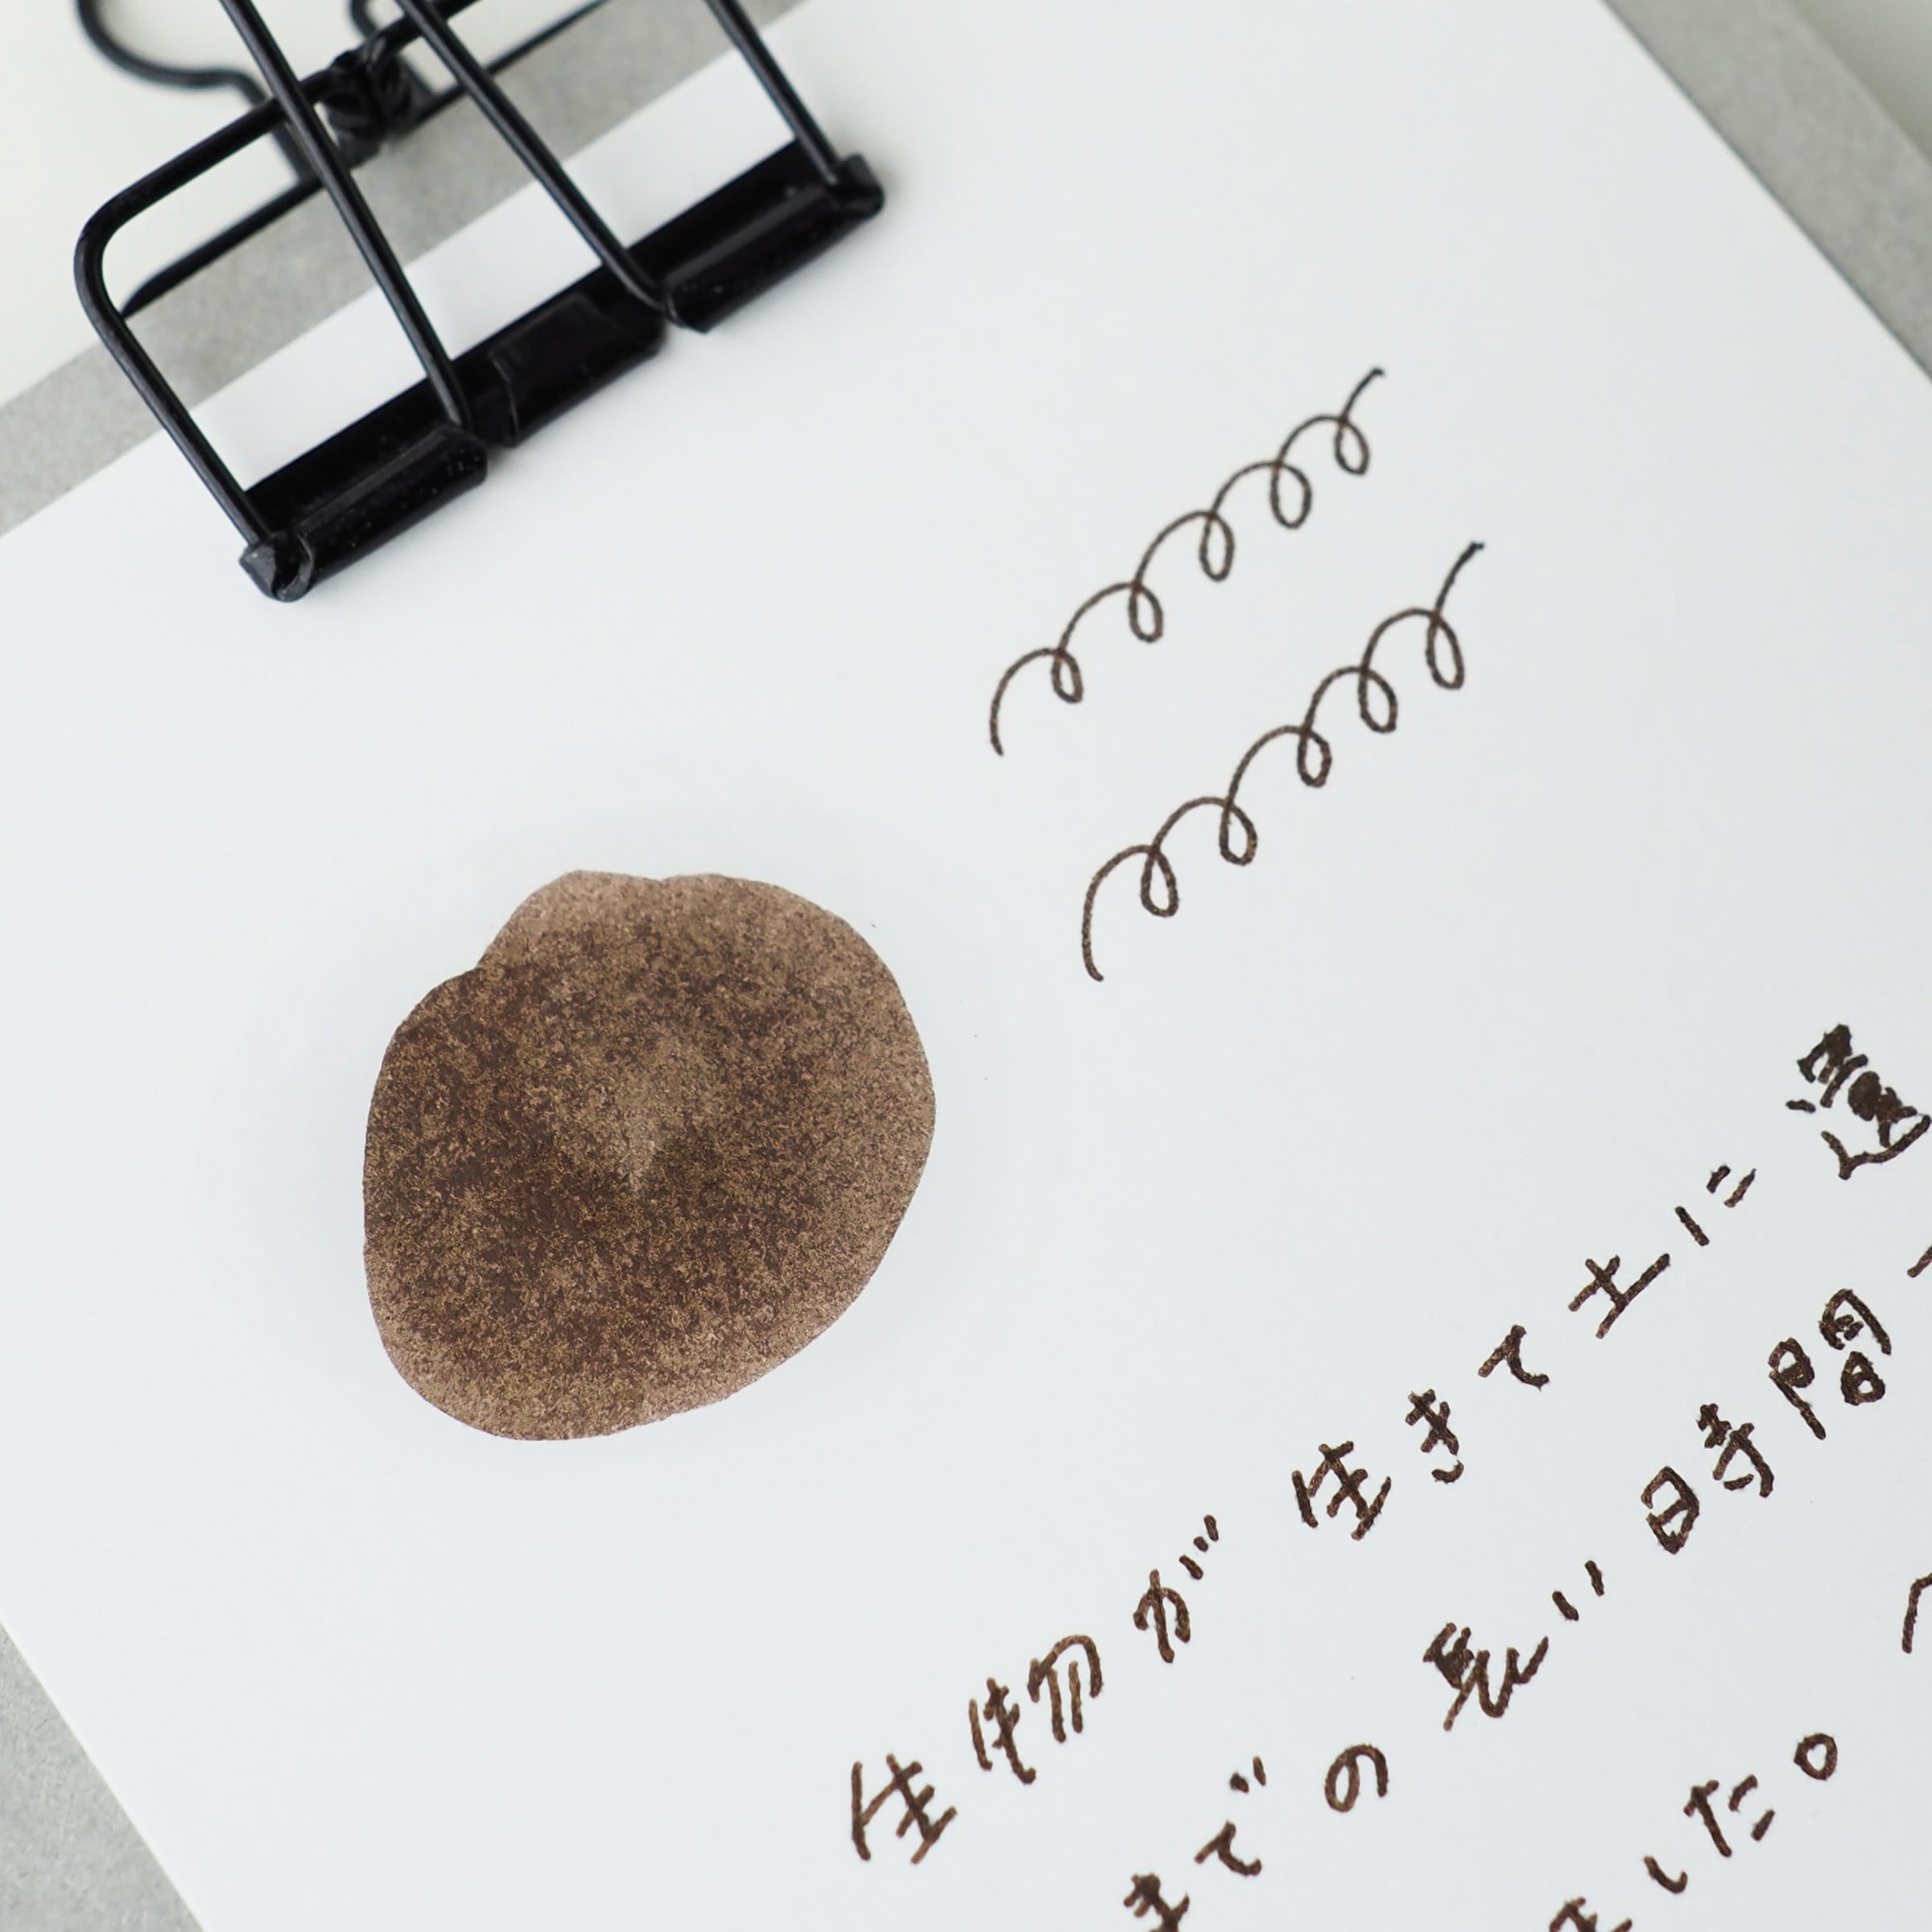 生物が生きて土に還
までの長い時間
した。